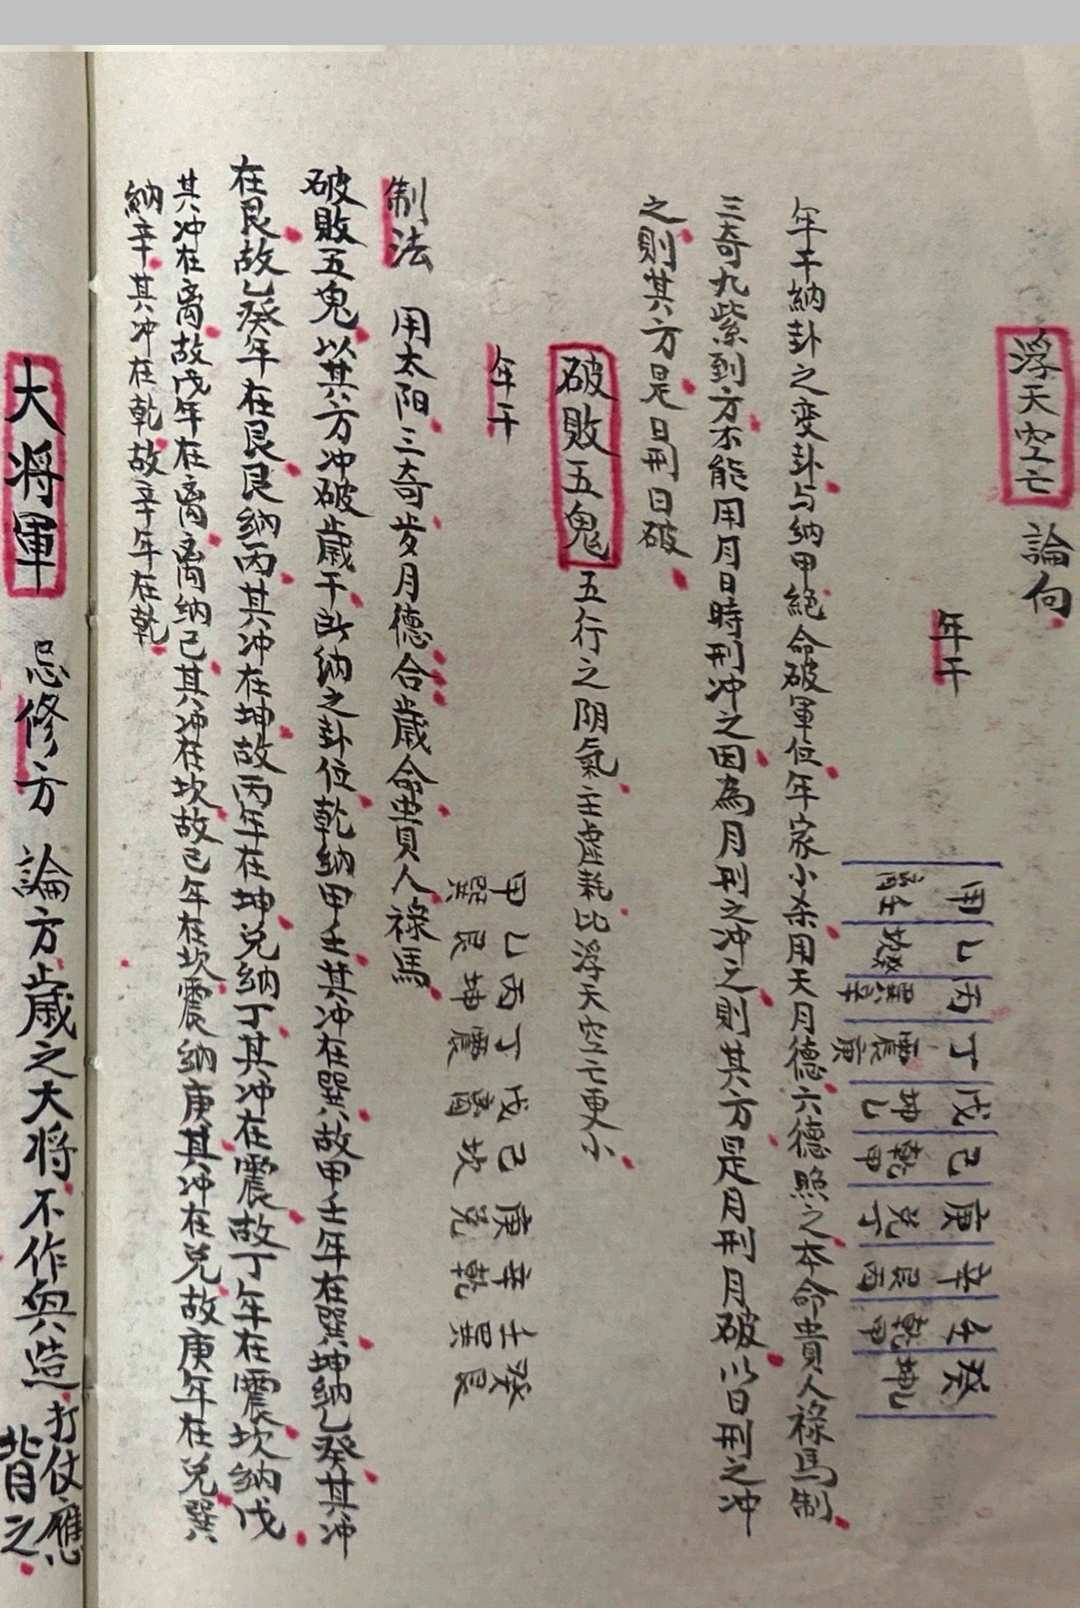 浮天空亡 論向
年干 甲 乙 丙 丁 戊 己 庚 辛 壬 癸
离壬 坎癸 巽辛 震庚 坤乙 乾甲 兑丁 艮丙 乾甲 坤乙
年干納卦之变卦与納甲絕命破軍位年家小杀用天月德六德照之本命貴人祿馬制
三奇九紫到方不能用月日時刑冲之因為月刑之冲之則其方是月刑月破以日刑之冲
之則其方是日刑日破
破敗五鬼 五行之阴氣主虛耗比浮天空亡更小
年干 甲 乙 丙 丁 戊 己 庚 辛 壬 癸
巽 艮 坤 震 离 坎 兑 乾 巽 艮
制法 用太阳三奇岁月德合歲命貴人祿馬
破敗五鬼以其方冲破歲干所納之卦位乾納甲壬其冲在巽故甲壬年在巽坤納乙癸其冲
在艮故乙癸年在艮艮納丙其冲在坤故丙年在坤兑納丁其冲在震故丁年在震坎納戊
其冲在离故戊年在离离納己其冲在坎故己年在坎震納庚其冲在兑故庚年在兑巽
納辛其冲在乾故辛年在乾
大将軍 忌修方 論方歲之大将不作與造打仗應
背之